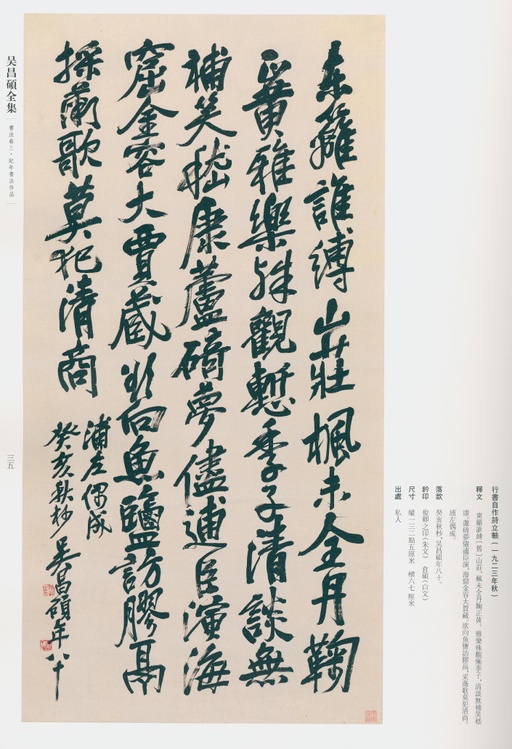 东籬誰縛山莊楓未全丹鞠
正黃雅樂殊觀慙季子清談無
補笑嵇康蘆碕夢儘逋臣演海
窟金容大賈藏欲向魚鹽訪膠鬲
採蘅歌莫犯清商
浦左偶成
癸亥秋杪吴昌碩年八十
行書自作詩立軸(一九二三年秋)
釋文 東籬誰縛山莊,楓未全丹鞠正黃。雅樂殊觀慚季子,清談無補笑嵇
康。蘆碕夢儘逋臣演,海窟金容大賈藏。欲向魚鹽訪膠鬲,采蘅歌莫犯清商。
浦左偶成。
落款 癸亥秋杪,吴昌碩年八十。
鈐印 俊卿之印(朱文) 倉碩(白文)
尺寸 縱一三二點五厘米 橫六七厘米
出處 私人
吴昌碩全集
書法卷二·紀年書法作品
三五